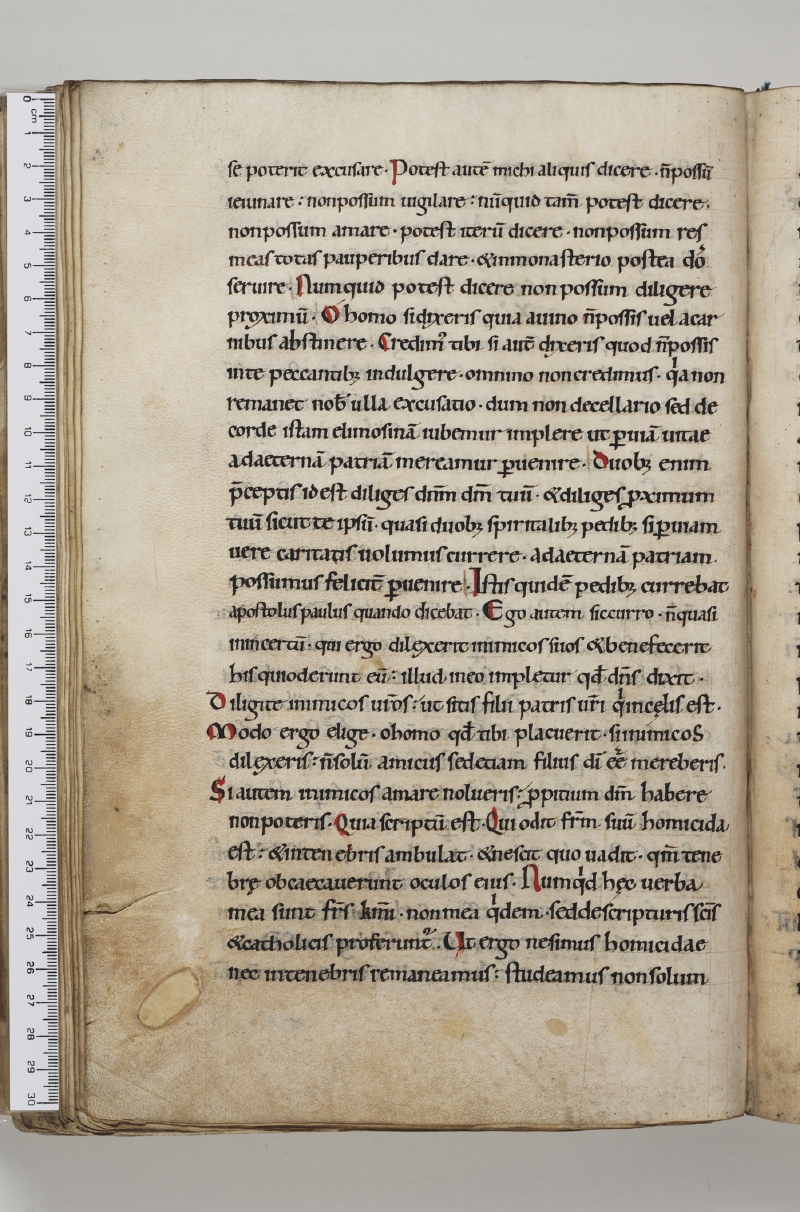 se poterit excusare · Potest autē michi aliquis dicere · n̄possū
ieiunare : nonpossum uigilare : nūquid tam̄ potest dicere ·
nonpossum amare · potest iterū dicere · nonpossum res
meas totas pauperibus dare · &inmonasterio postea dō
seruire · Numquid potest dicere non possum diligere
proximū · O homo sidixeris quia auino n̄possis uel acar
nibus abstinere · Credim᾽ tibi si aut̄ dixeris quod n̄possis
inte peccantibꝫ indulgere · omnino noncredimus · qͥa non
remanet nob̄ ulla excusatio · dum non decellario sed de
corde istam elimosinā iubemur implere ut ꝑuiā uitae
adaeternā patriā mereamur ꝑuenire · Duobꝫ enim
p̄ceptis idest diliges dn̄m dm̄ tuū · &diliges ꝓximum
tuū sicut te ipsū · quasi duobꝫ spiritalibꝫ pedibꝫ si ꝑuiam
uere caritatis uolumus currere · adaeternā patriam
possumus felicit̄ ꝑuenire · Istis quidē pedibꝫ currebat
apostolus paulus quando dicebat · Ego autem siccurro · n̄quasi
inincertū · qui ergo dilexerit inimicos suos &benefecerit
his quioderunt eū : illud ineo impletur qd̄ dn̄s dixit ·
Diligite inimicos ur̄os : ut sitis filii patris ur̄i qͥincęlis est ·
Modo ergo elige · ohomo qd̄ tibi placuerit · siinimicos
dilexeris : n̄solū amicus sedetiam filius dī eē mereberis ·
Si autem inimicos amare nolueris : ꝓpitium dm̄ habere
nonpoteris · Quia scriptū est · Qui odit fr̄m suū homicida
est : &intenebris ambulat · &nescit quo uadit · qm̄ tene
brę obcaecauerunt oculos eius · Numqͥd hęc uerba
mea sunt fr̄s km̄i · nonmea qͥdem · seddescripturis sc̄is
&catholicis proferunt᾽ · Ut ergo nesimus homicidae
nec intenebris remaneamus : studeamus nonsolum
0 cm 1 2 3 4 5 6 7 8 9 10 11 12 13 14 15 16 17 18 19 20 21 22 23 24 25 26 27 28 29 30